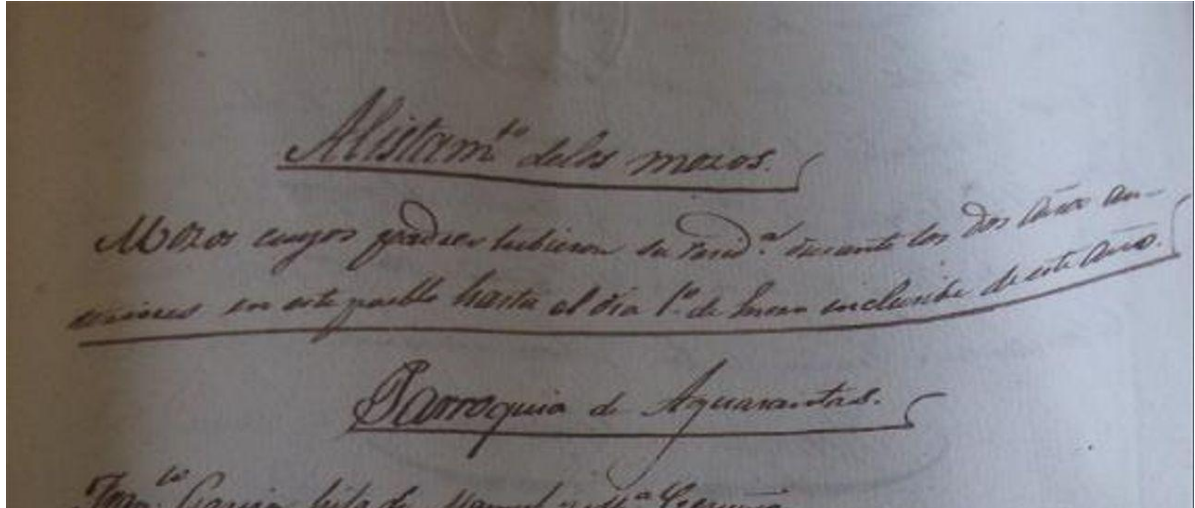 Alistam.to delos mozos.
Mozos cuyos padres tubieron su resid.a durante los dos años an-
teriores en este pueblo hasta el dia 1.o de Enero inclusibe de este año.
Parroquia de Aguasantas.
Garcia hijo de Manuel y M.a